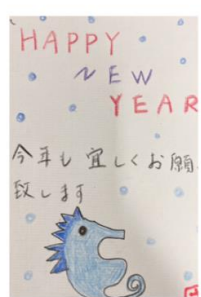 HAPPY
NEW
YEAR
今年も宜しくお願
致します